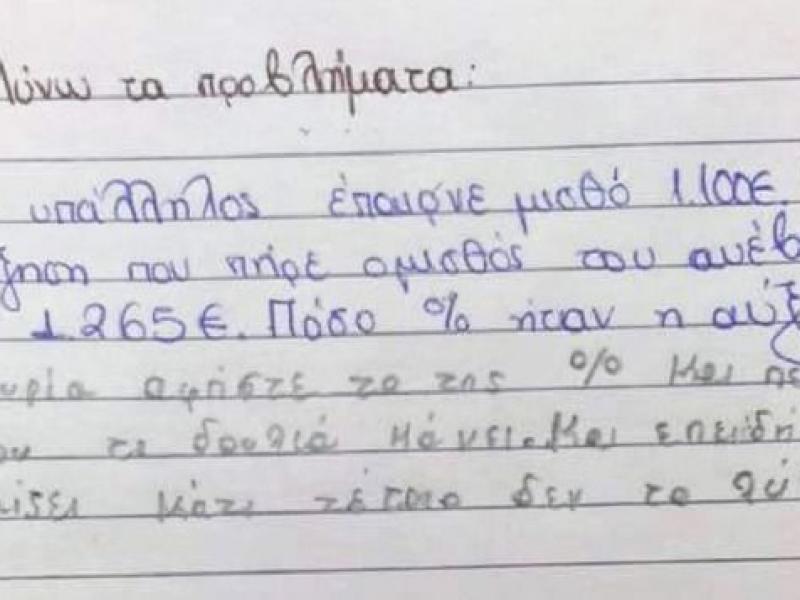 λύνω τα προβλήματα:
υπάλληλος έπαιρνε μισθό 1.100€.
ξηση που πήρε ο μισθός του ανέβ
1.265€. Πόσο % ήταν η αύξ
υρία αφήστε το της % και πε
ου τι δουλιά κάνει. Και επειδή
ίσει κάτι τέτοιο δεν το λύ